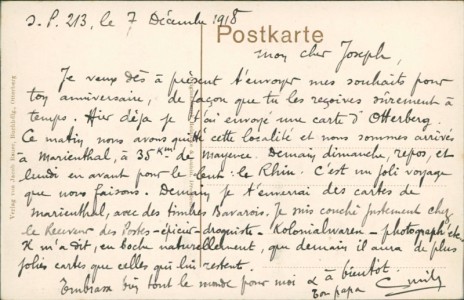 S.P. 213, le 7 Décembre 1918
Postkarte
mon cher Joseph,
Je veux dès à présent t'envoyer mes souhaits pour
ton anniversaire, de façon que tu les reçoives sûrement à
temps. Hier déja je t'ai envoyé une carte d'Otterberg.
Ce matin nous avons quitté cette localité et nous sommes arrivés
à Marienthal, à 35 Km de mayence. Demain dimanche, repos, et
lundi en avant pour le Rhin. C'est un joli voyage
que nous faisons. Demain je t'enverrai des cartes de
marienthal, avec des timbres Bavarois. Je suis couché justement chez
le Receveur des Postes - épicier - droguiste - Kolonialwaren - photograph etc.
Il m'a dit, en boche naturellement, que demain il aura de plus
jolies cartes que celles qui lui restent.
Embrasse bien tout le monde pour moi & à bientôt.
Ton papa
Emile
Verlag von Jacob Otterberg